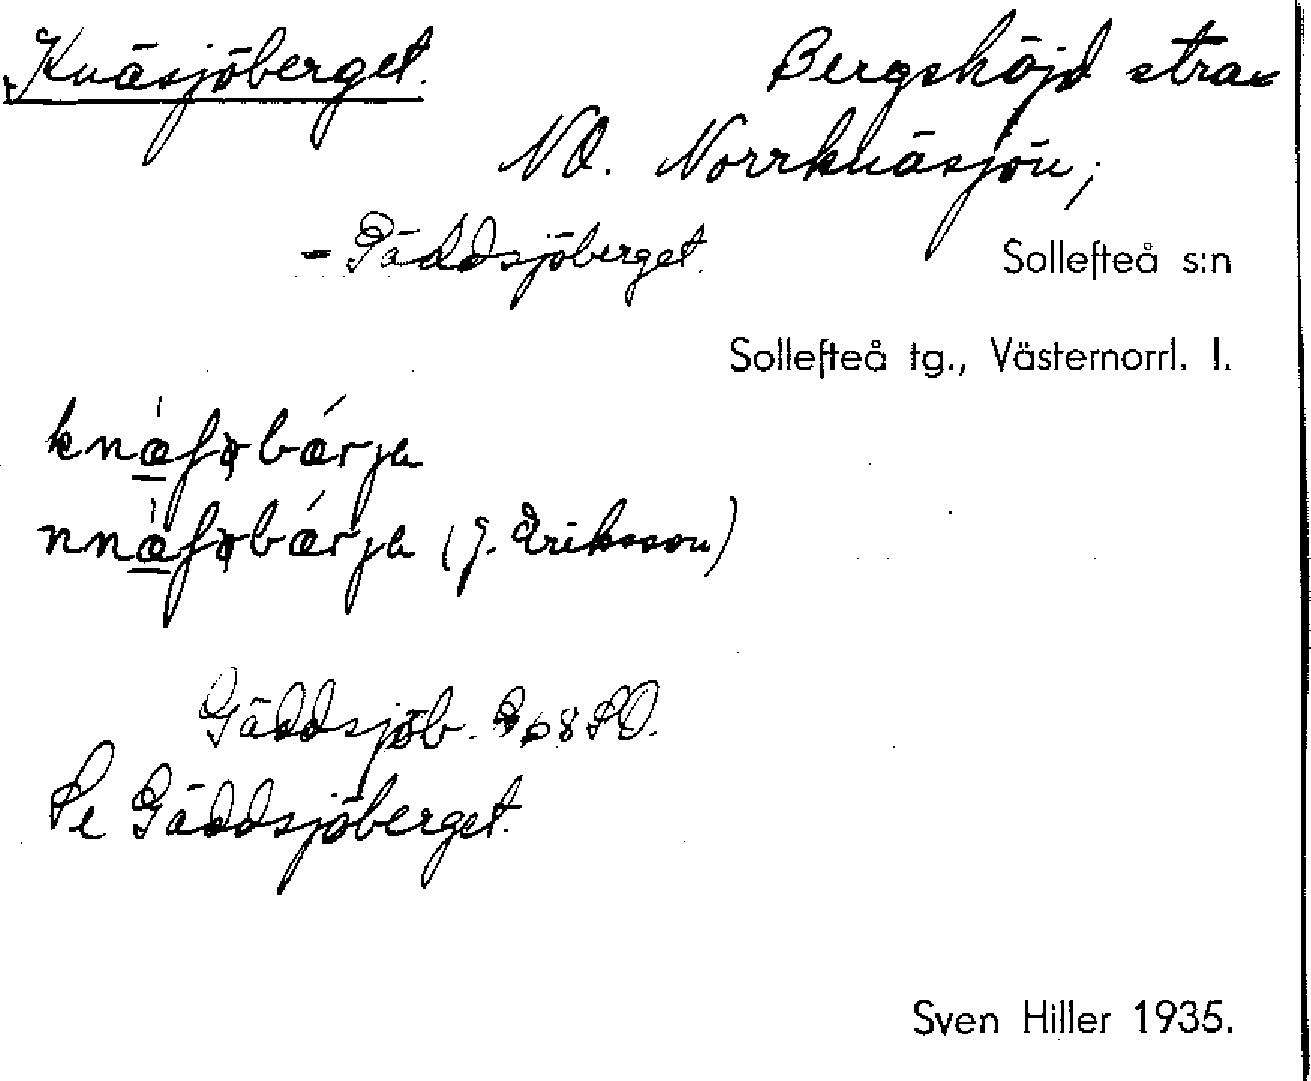 Knäsjöberget. Bergshöjd strax
NO. Norrknäsjön;
= Gäddsjöberget.
Sollefteå s:n
Sollefteå tg., Västernorrl. l.
(J. Eriksson)
Gäddsjöb. 368 SO.
Se Gäddsjöberget.
Sven Hiller 1935.